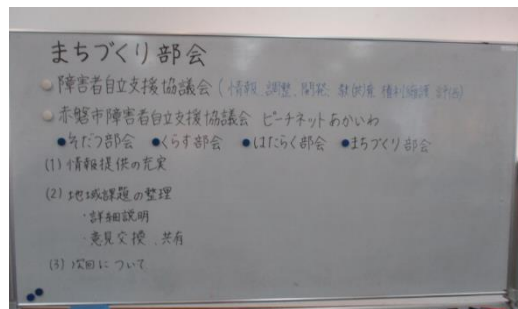 まちづくり部会
障害者自立支援協議会 (情報、調整、開発、教育、権利擁護、評価)
赤磐市障害者自立支援協議会 ピーチネットあかいわ
●そだつ部会 ●くらす部会 ●はたらく部会 ●まちづくり部会
(1) 情報提供の充実
(2) 地域課題の整理
・詳細説明
・意見交換、共有
(3) 次回について